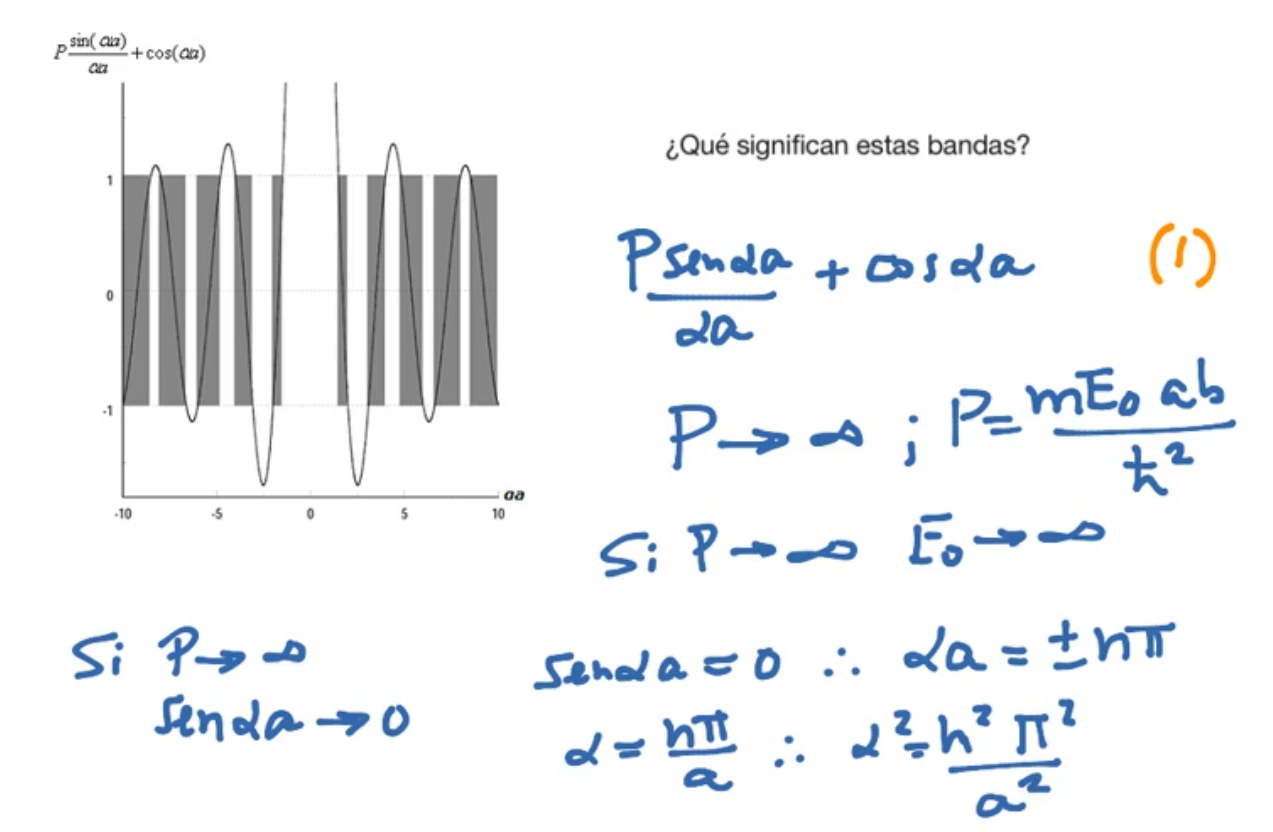 P sin(αa)/αa + cos(αa)
1
0
-1
-10 -5 0 5 10
αa
¿Qué significan estas bandas?
P sen αa / αa + cos αa (1)
P → ∞ ; P = mE₀ ab / ħ²
Si P → ∞ E₀ → ∞
Si P → ∞
sen αa → 0
sen αa = 0 ∴ αa = ± nπ
α = nπ / a ∴ α² = n² π² / a²